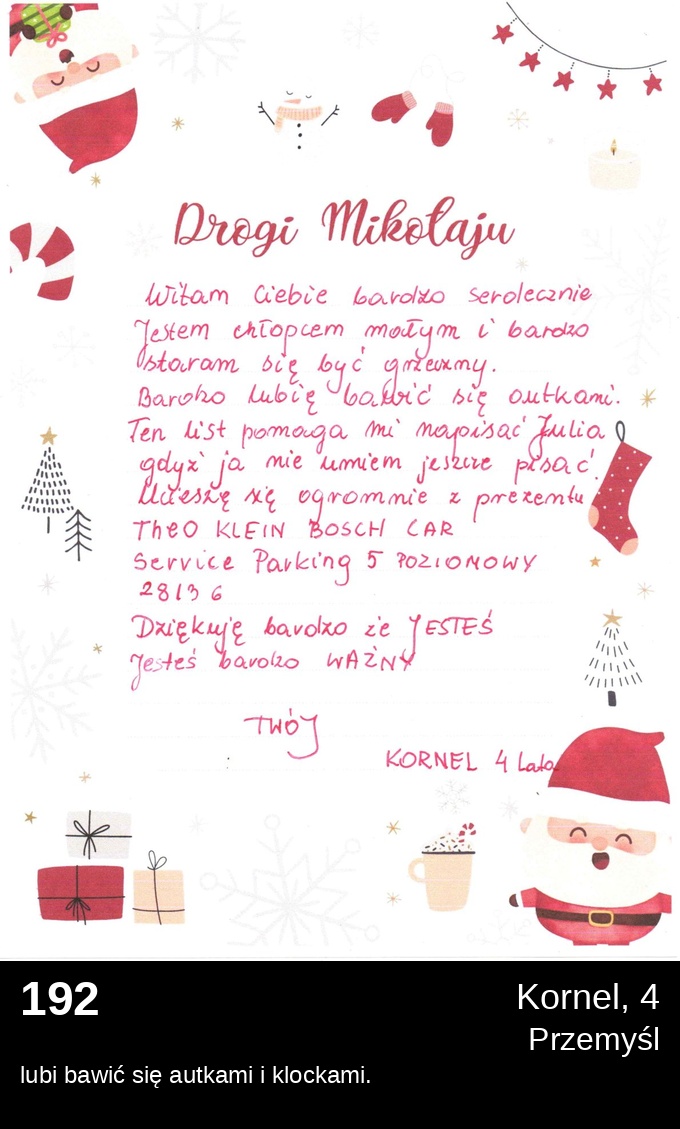 Drogi Mikołaju
Witam Ciebie bardzo serdecznie
Jestem chłopcem małym i bardzo
staram się być grzeczny.
Bardzo lubię bawić się autkami.
Ten list pomaga mi napisać Julia
gdyż ja nie umiem jeszcze pisać.
Ucieszę się ogromnie z prezentu
Theo KLEIN BOSCH CAR
Service Parking 5 POZIOMOWY
28136
Dziękuję bardzo że JESTEŚ
Jesteś bardzo WAŻNY
TWÓJ
KORNEL 4 Lata
192
Kornel, 4
Przemyśl
lubi bawić się autkami i klockami.